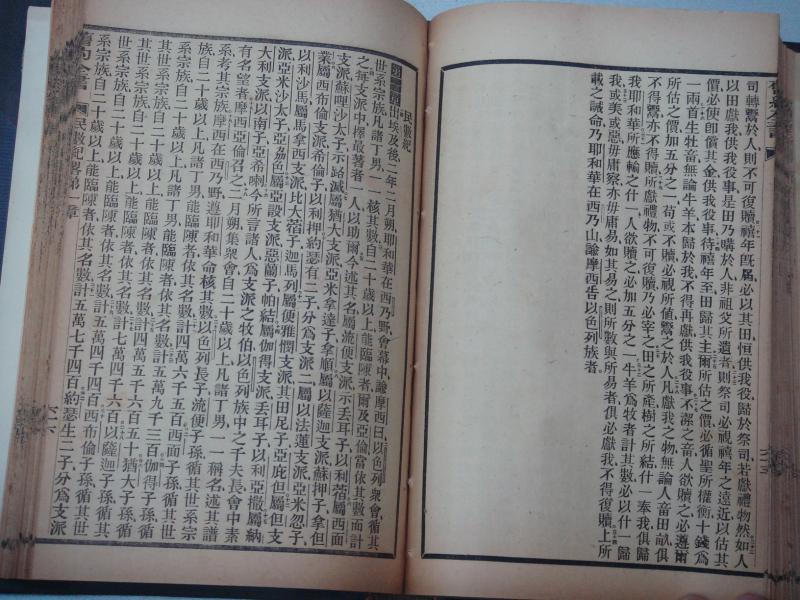 司轉鬻於人則不可復贖禧年旣屆必以其田恒供我役歸於祭司若獻禮物然如人
以田獻我供我役事是田乃購於人非祖父所遺者則祭司必視禧年之遠近以估其
價必使卽償其金供我役事待禧年至田歸其主爾所估之價必循聖所權衡十錢爲
一兩首生牲畜無論牛羊本歸於我不得再獻供我役事不潔之畜人欲贖之必遵爾
所估之價加五分之一苟或不贖必視所値鬻之於人凡獻我之物無論人畜田畝俱
不得鬻亦不得贖所獻禮物不可復贖乃必宰之田之所產樹之所結什一奉我俱歸
我耶和華所應輸之什一人欲贖之必加五分之一牛羊爲牧者計其數必以什一歸
我或美或惡毋庸察亦毋庸易如其易之則所敷與所易者俱必獻我不得復贖上所
載之誡命乃耶和華在西乃山諭摩西吿以色列族者
民數紀
出埃及後二年二月朔耶和華在西乃野會幕中諭摩西曰以色列衆會循其
世系宗族凡諸丁男一一核其數自二十歲以上能臨陳者爾及亞倫當依其數而計
之每支派中擇最著者一人以助爾今述其名屬流便支派示丟耳子以利蓿屬西面
支派蘇哩沙太子示路滅屬猶大支派亞米拿達子拿順屬以薩迦支派蘇押子拿但
業屬西布倫支派希倫子以利押約瑟有二子分爲支派二屬以法蓮支派亞米忽子
以利沙馬屬馬拿西支派比大蓿子迦馬列屬便雅憫支派其田尼子亞庇但屬但支
派亞米沙太子亞希色屬亞設支派亞蘭子帕結屬伽得支派丟耳子以利亞撒屬納
大利支派以南子亞希喇今所言諸人爲支派之牧伯以色列族中之千夫長會中素
有名望者摩西亞倫召之二月朔集衆會自二十歲以上凡諸丁男一一稱名述其譜
系考其宗族摩西在西乃野遵耶和華命核其數以色列長子流便子孫循其世系宗
族自二十歲以上凡諸丁男能臨陳者依其名數計四萬六千五百西面子孫循其
其世系宗族自二十歲以上凡諸丁男能臨陳者依其名數計五萬九千三百伽得子孫循
世系宗族自二十歲以上能臨陳者依其名數計四萬五千六百五十猶大子孫循其
世系宗族自二十歲以上能臨陳者依其名數計七萬四千六百以薩迦子孫循其世
系宗族自二十歲以上能臨陳者依其名數計五萬四千四百西布倫子孫循其世
系宗族自二十歲以上能臨陳者依其名數計五萬七千四百約瑟生二子分爲支派
舊約全書 民數紀畧第一章